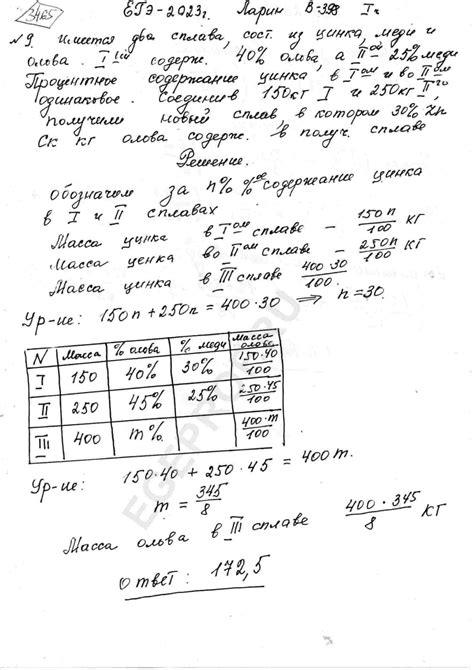 3465 ЕГЭ-2023г. Ларин В-398 I г.
№9. Имеется два сплава, сост. из цинка, меди и
олова. I ый содерж. 40% олва, а II ой - 25% меди
Процентное содержание цинка, в I ом и во II ом
одинаковое. Соединив 150кг I и 250кг II го,
получили новый сплав, в котором 30% Zn
Ск кг олова содерж. в получ. сплаве
Решение.
обозначим за n% %ое содержание цинка
в I и II сплавах
Масса цинка в I ом сплаве - 150n/100 кг
Масса ценка во II ом сплаве - 250n/100 кг
Масса цинка в III сплаве 400·30/100.
Ур-ие: 150n + 250n = 400·30 ⇒ n=30.
N Масса % олова % меди Масса олова
I 150 40% 30% 150·40/100
II 250 45% 25% 250·45/100
III 400 m% 400·m/100
Ур-ие: 150·40 + 250·45 = 400m.
m = 345/8
Масса ольва в III сплаве 400·345/8 кг
ответ: 172,5
EGEPROF.RU